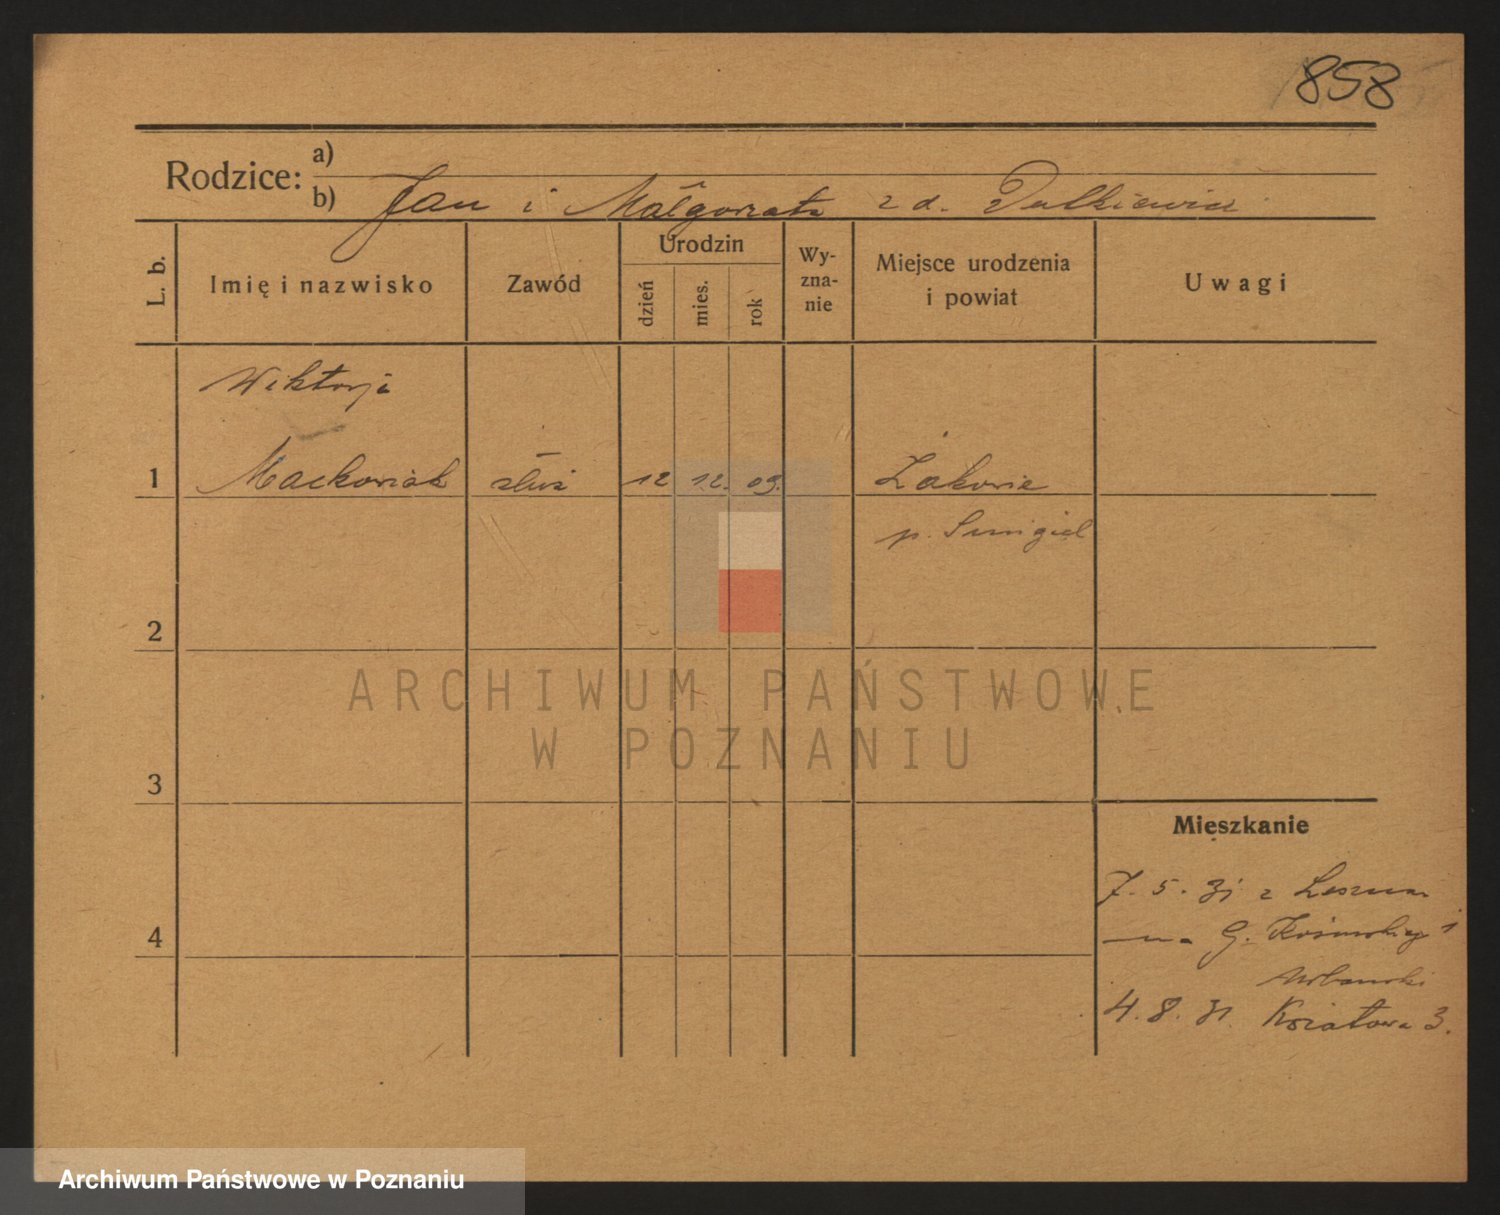 858
Rodzice: a)
b) Jan i Małgorzata z d. Dulkiewicz
L. b.
Imię i nazwisko
Zawód
Urodzin
dzień
mies.
rok
Wy-
zna-
nie
Miejsce urodzenia
i powiat
Uwagi
Wiktorja
1 Maćkowiak służ 12 12. 09. Żakowie
p. Śmigiel
2
ARCHIWUM PAŃSTWOWE
W POZNANIU
3
Mieszkanie
7. 5. 31 z Leszna
4 na G. 1
Urbanski
4. 8. 31. Kwiatowa 3.
Archiwum Państwowe w Poznaniu